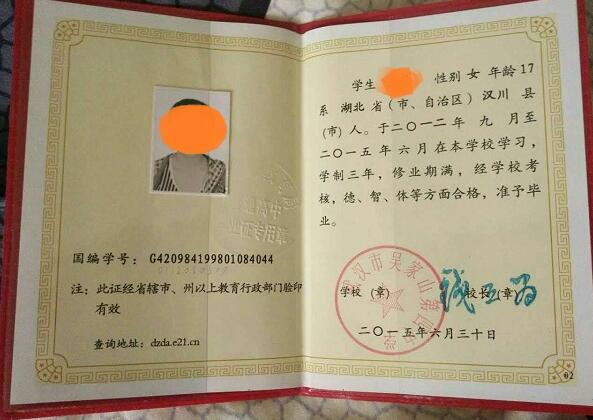 高中
业证专用章
国编学号：G420984199801084044
注：此证经省辖市、州以上教育行政部门验印
有效
查询地址：dzda.e21.cn
学生 性别 女 年龄 17
系 湖北 省（市、自治区）汉川 县
（市）人。于二〇一二年 九 月至
二〇一五年 六 月在本学校学习，
学制三年，修业期满，经学校考
核，德、智、体等方面合格，准予毕
业。
汉市吴家山第四中学
学校（章） 校长（章）
二〇一五年六月三十日
02